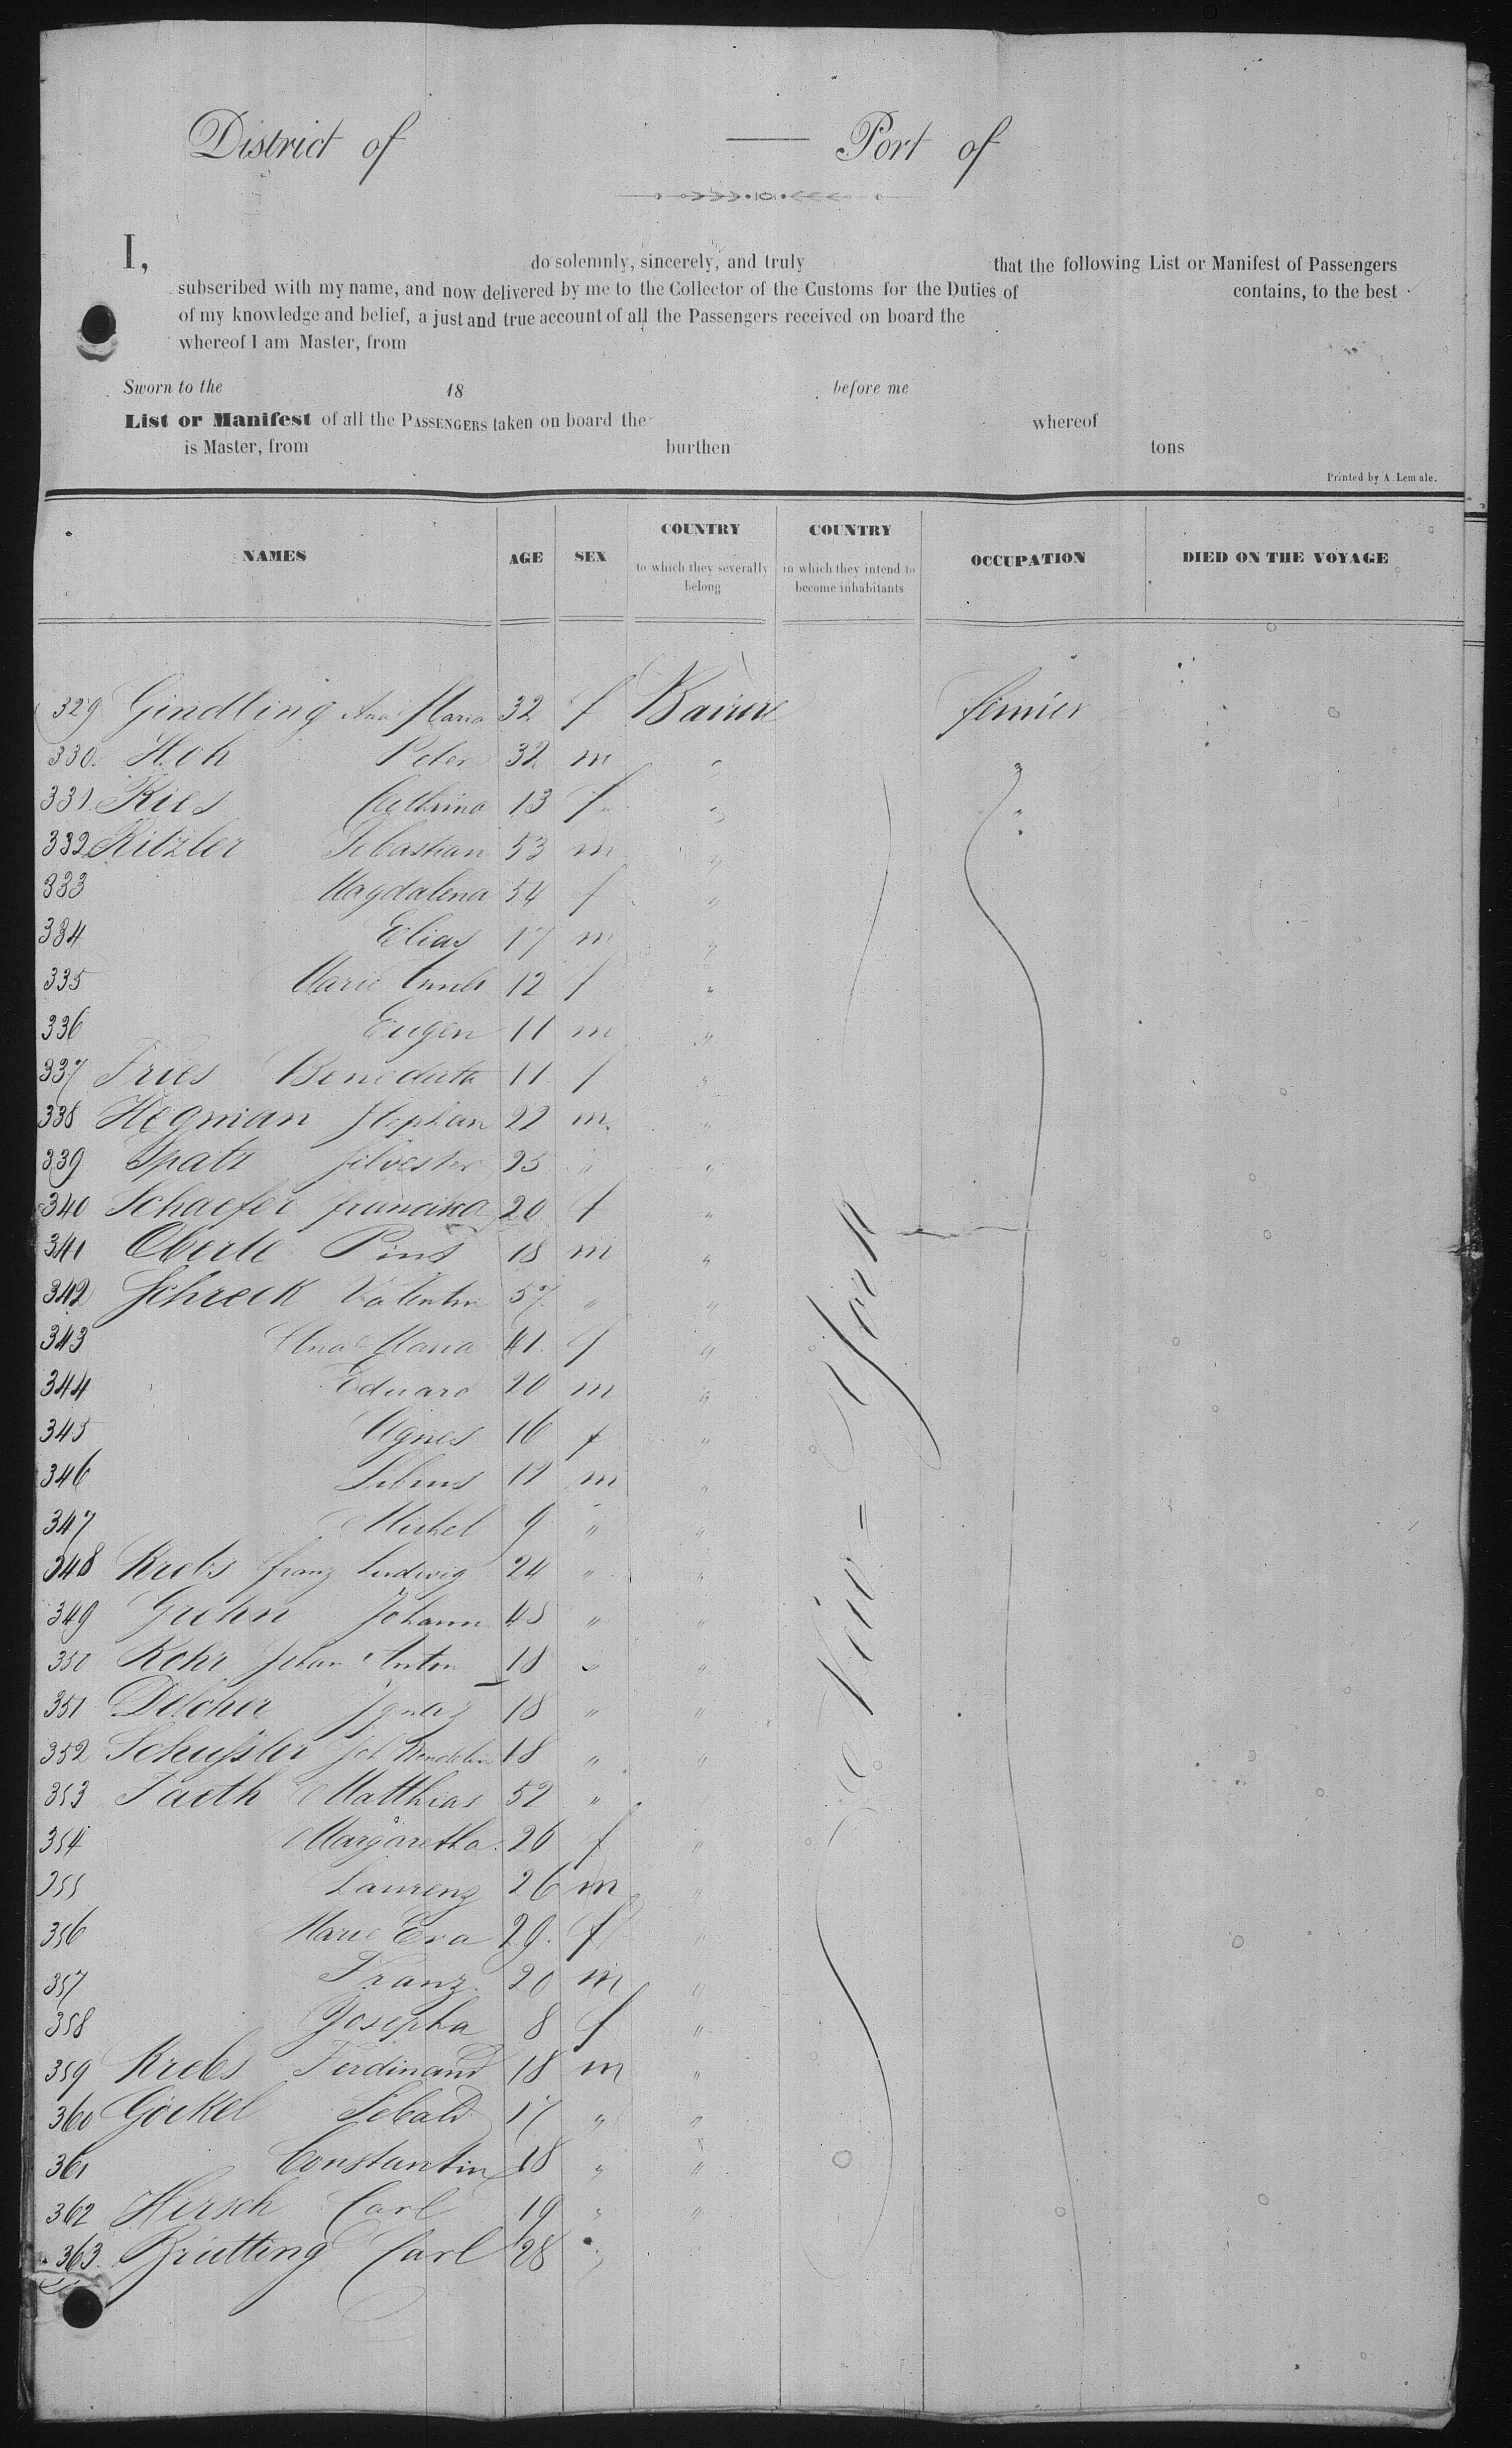 District of — Port of
I, do solemnly, sincerely, and truly that the following List or Manifest of Passengers
subscribed with my name, and now delivered by me to the Collector of the Customs for the Duties of contains, to the best
of my knowledge and belief, a just and true account of all the Passengers received on board the
whereof I am Master, from
Sworn to the 18 before me
List or Manifest of all the PASSENGERS taken on board the whereof
is Master, from burthen tons
Printed by A. Lemale.
NAMES AGE SEX COUNTRY to which they severally belong COUNTRY in which they intend to become inhabitants OCCUPATION DIED ON THE VOYAGE
329 Gindling Ana Maria 32 f Baiern
330. Hoh Peter 32 m "
331. Ries Cathrina 13 f "
332 Ritzler Sebastian 53 m "
333 Magdalena 54 f "
334 Elias 17 m "
335 Marie 12 f "
336 Eugen 11 m "
337 Fries 11 f "
338 Hegman Stephan 22 m. "
339 Spatz Silvester 25 " "
340 Schaefer francisca 20 f "
341 Oberle Pius 18 m "
342 Schreck Valentin 57. " "
343 Ana Maria 41. f "
344 Eduard 20 m "
345 Agnes 16 f "
346 12 m "
347 Michel 9 " "
348 Krebs franz Ludwig 24 " "
349 Johann 45 " "
350 Rohr Johan Anton 18 " "
351 Ignaz 18 " "
352 Schußler Joh Wendelin 18 " "
353 Faeth Matthias 52 "
354 Margaretha. 26 f "
355 Laurenz 26 m "
356 Marie Eva 29. f "
357 Franz. 20 m "
358 Josepha 8 f "
359 Krebs Ferdinand 18 m "
360 Göckel Sebald 17 " "
361 Constantin 18 " "
362 Hirsch Carl 19 " "
363. Brütting Carl 28 "
New-York